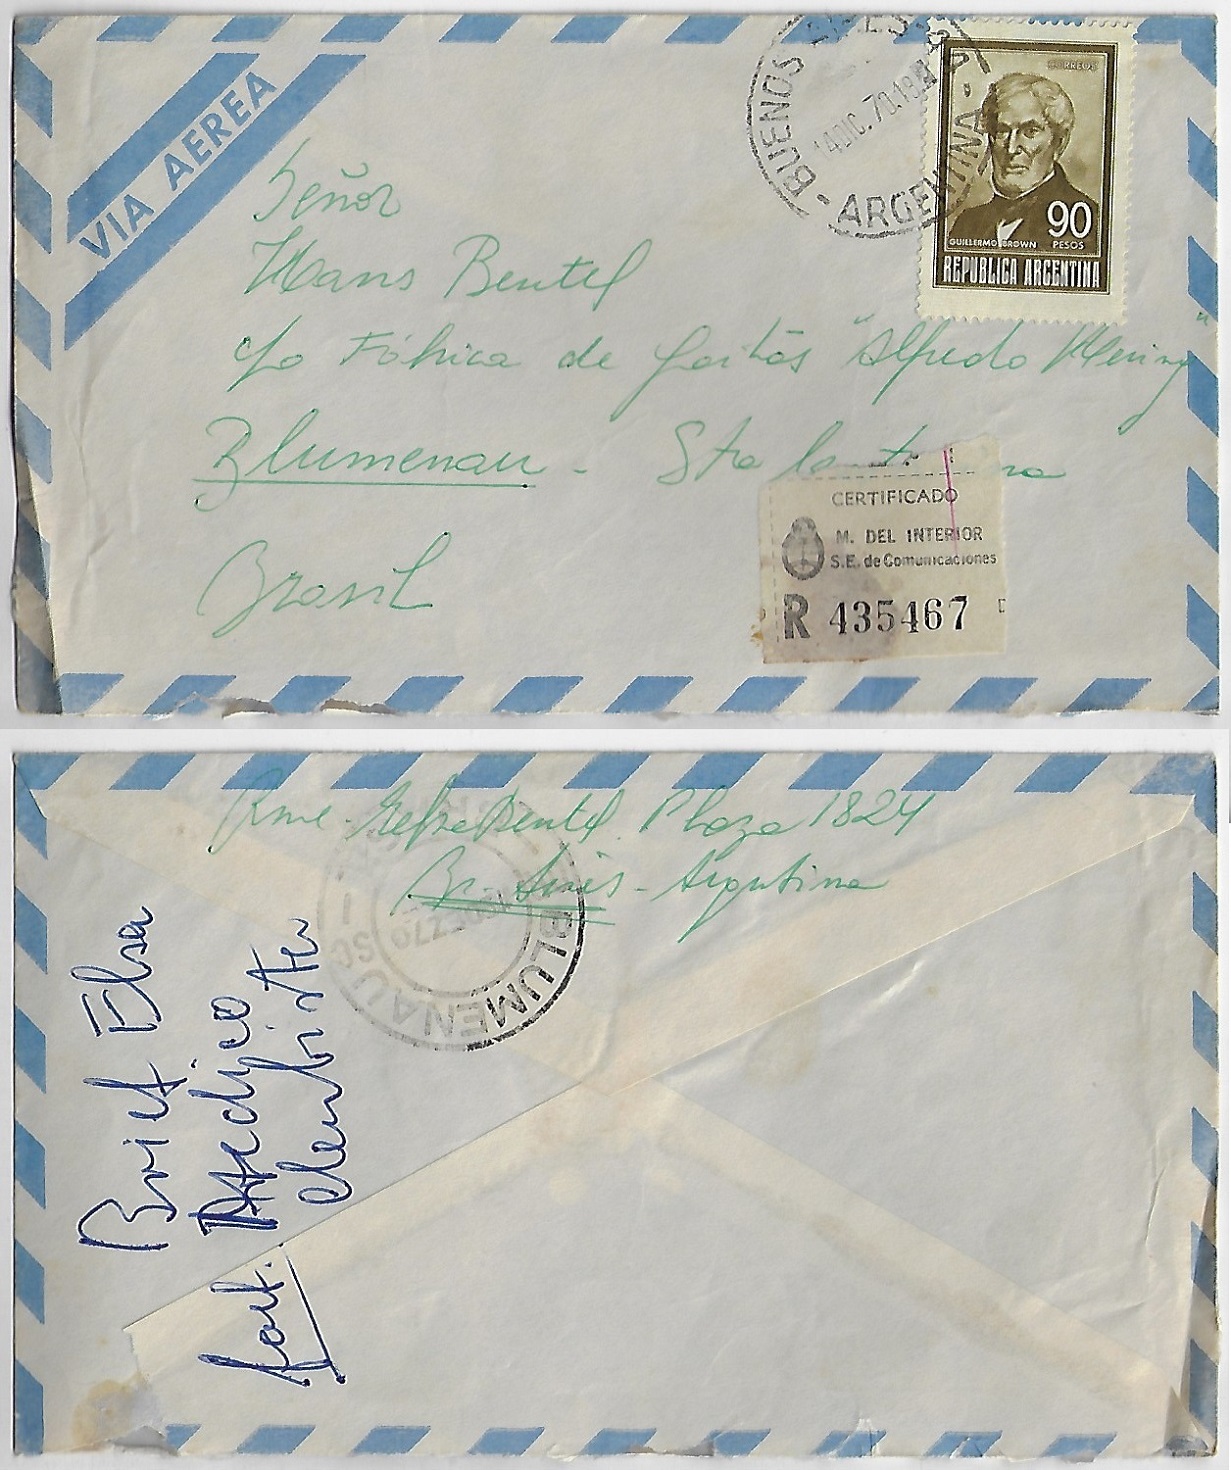 VIA AEREA
BUENOS AIRES
4 DIC. 70. 19
ARGENTINA
CORREOS
90
PESOS
GUILLERMO BROWN
REPUBLICA ARGENTINA
Señor
Hans Bentel
c/o Fábrica de Gaitas "Alfredo Hering"
Blumenau - Sta
Brasil
CERTIFICADO
M. DEL INTERIOR
S.E. de Comunicaciones
R 435467
Rme. Bentel Plaza 1824
Bs. Aires - Argentina
BLUMENAU
SC
Brief Elsa